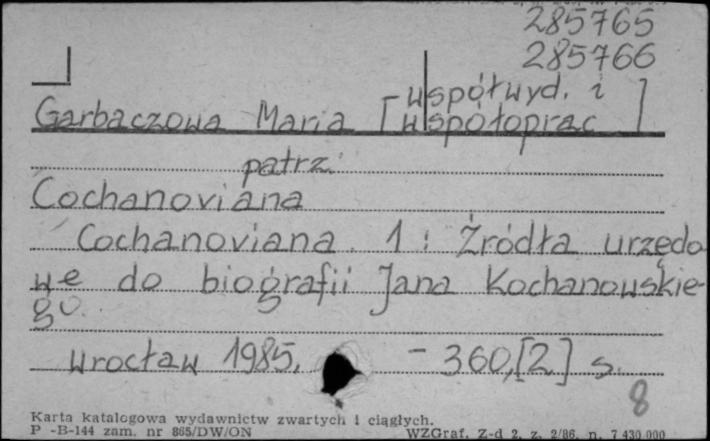 285765
285766
Garbaczowa Maria [współwyd. i
współoprac]
patrz:
Cochanoviana
Cochanoviana. 1: Źródła urzędo
we do biografii Jana Kochanowskie-
go.
Wrocław 1985. - 360,[2] s.
8
Karta katalogowa wydawnictw zwartych i ciągłych.
P -B-144 zam. nr 865/DW/ON WZGraf. Z-d 2, z. 2/86, n. 7 430 000